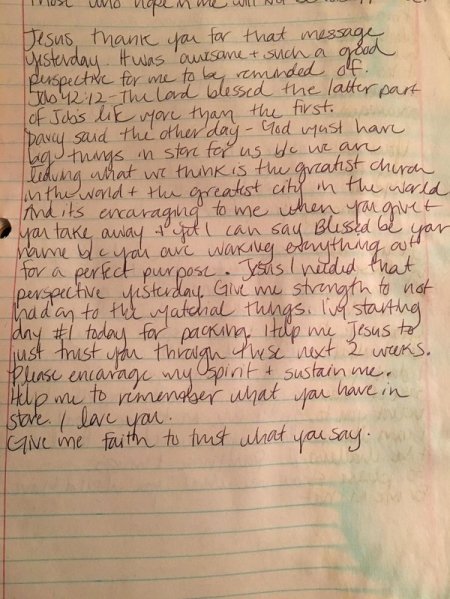 those who hope in me will not be
Jesus thank you for that message
yesterday. It was awesome + such a good
perspective for me to be reminded of.
Job 42:12 - The Lord blessed the latter part
of Job's life more than the first.
Darcy said the other day - God must have
big things in store for us b/c we are
leaving what we think is the greatest church
in the world + the greatest city in the world
And its encouraging to me when you give +
you take away + yet I can say Blessed be your
name b/c you are working everything out
for a perfect purpose. Jesus I needed that
perspective yesterday. Give me strength to not
hold on to the material things. I'm starting
day #1 today for packing. Help me Jesus to
just trust you through these next 2 weeks.
Please encourage my spirit + sustain me.
Help me to remember what you have in
store. I love you.
Give me faith to trust what you say.